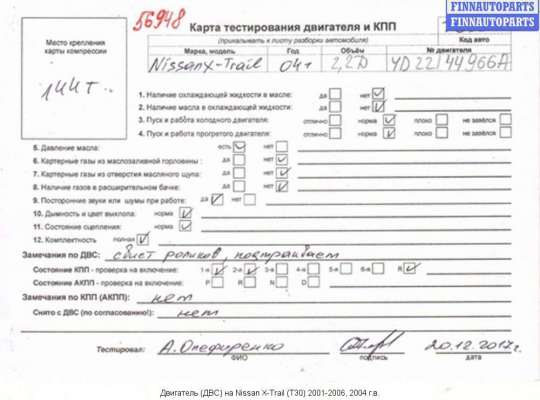 FINNAUTOPARTS
FINNAUTOPARTS
56948
Карта тестирования двигателя и КПП
(прикалывать к листу разборки автомобиля)
Код авто
Место крепления
карты компрессии
Марка, модель Год Объём № двигателя
Nissan X-Trail 04г 2,2D YD22/44966A
1. Наличие охлаждающей жидкости в масле: да нет
2. Наличие масла в охлаждающей жидкости: да нет
3. Пуск и работа холодного двигателя: отлично норма плохо не завёлся
4. Пуск и работа прогретого двигателя: отлично норма плохо не завёлся
5. Давление масла: есть нет
6. Картерные газы из маслозаливной горловины : да нет
7. Картерные газы из отверстия масляного щупа: да нет
8. Наличие газов в расширительном бачке: да нет
9. Посторонние звуки или шумы при работе: да нет
10. Дымность и цвет выхлопа: норма
11. Состояние сцепления: норма
12. Комплектность полная
Замечания по ДВС: свист роликов, подтраивает
Состояние КПП - проверка на включение: 1-я 2-я 3-я 4-я 5-я 6-я R
Состояние АКПП - проверка на включение: P R N D
Замечания по КПП (АКПП): нет
Снято с ДВС (по согласованию!): нет
Тестировал: А. Олефиренко 20.12.2017г.
ФИО подпись дата
Двигатель (ДВС) на Nissan X-Trail (T30) 2001-2006, 2004 г.в.